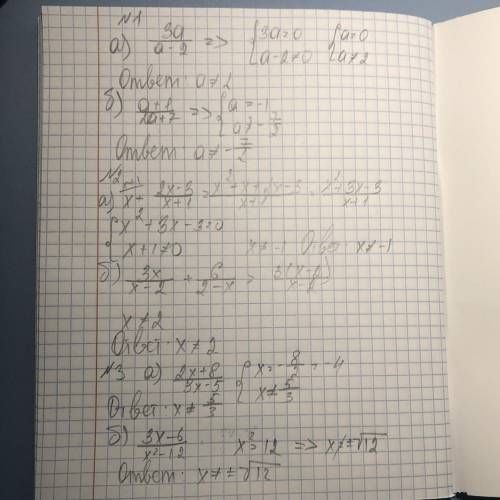 №1
а) 3a/(a-2) => {3a=0 {a=0
{a-2≠0 {a≠2
Ответ: a≠2
б) (a+1)/(2a+7) => {a=-1
{a≠-7/2
Ответ: a≠-7/2
№2
а) x + (2x-3)/(x+1) = (x²+x+2x-3)/(x+1) = (x²+3x-3)/(x+1)
{x²+3x-3=0
{x+1≠0 x≠-1 Ответ: x≠-1
б) 3x/(x-2) + 6/(2-x)
x≠2
Ответ: x≠2
№3 а) (2x+8)/(3x-5) {x=-8/2=-4
{x≠5/3
Ответ: x≠5/3
б) (3x-6)/(x²-12) x²≠12 => x≠±√12
Ответ: x≠±√12